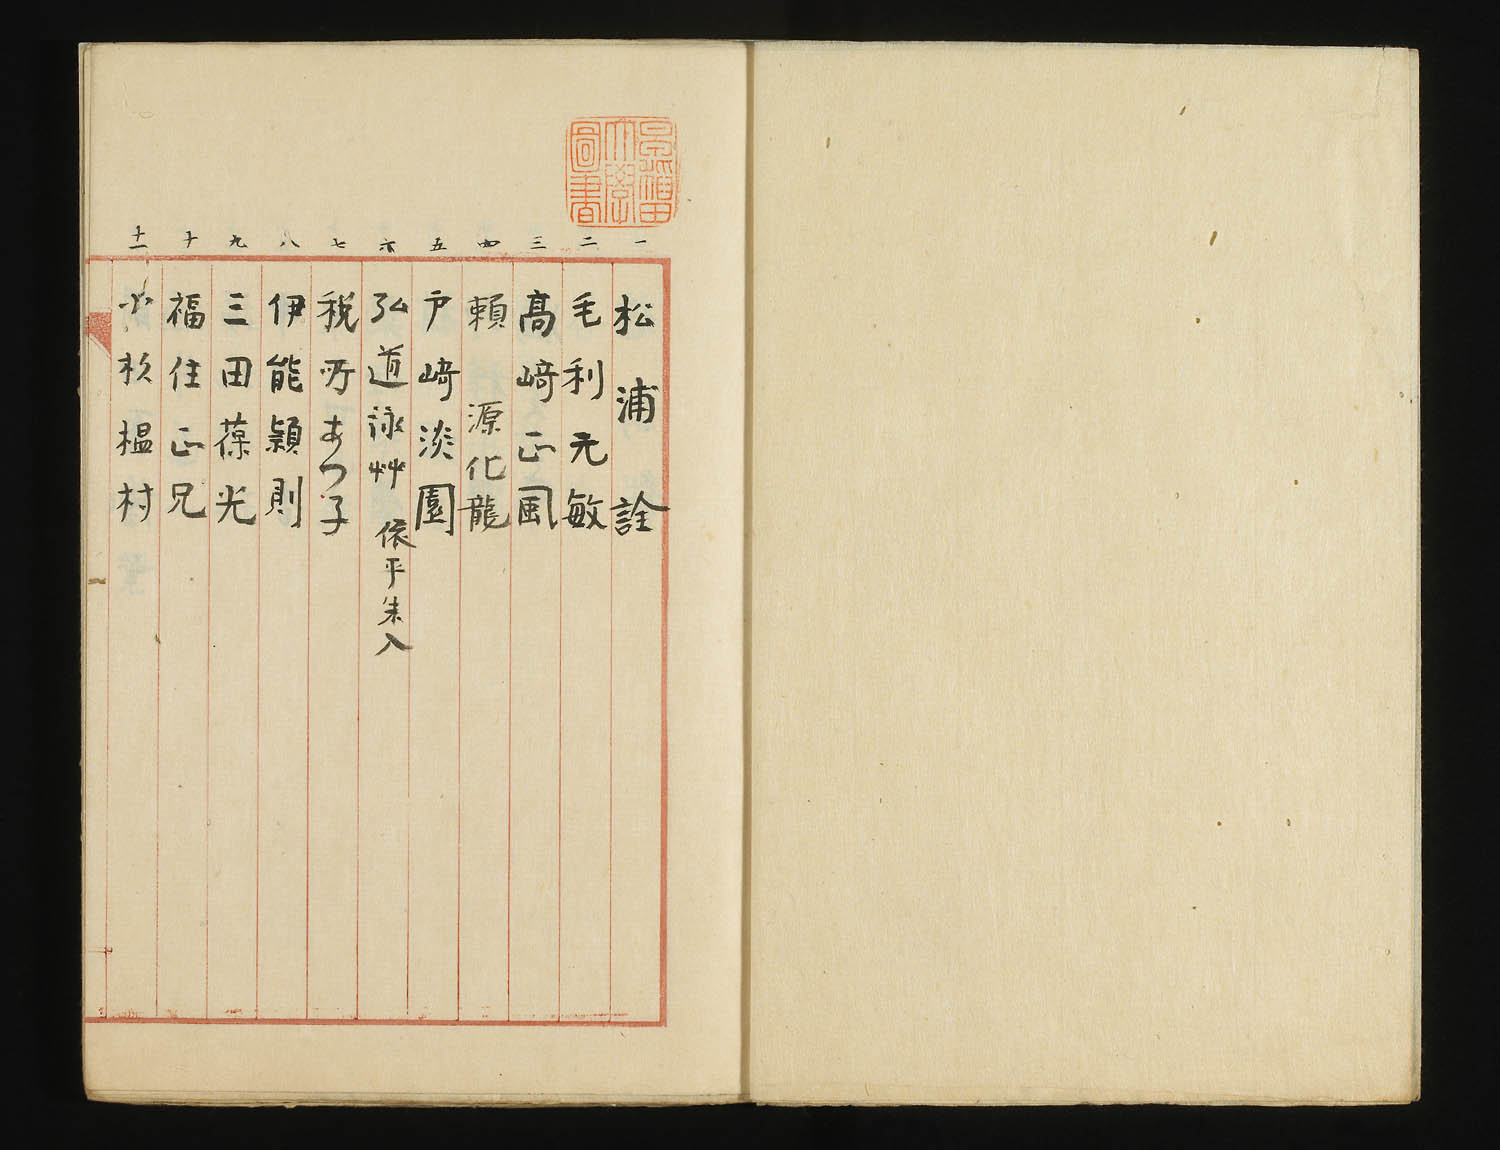 早稲田
大學
圖書
一 松浦詮
二 毛利元敏
三 高﨑正風
四 頼源化龍
五 戸﨑淡園
六 弘道詠艸 依平朱入
七 税所あつ子
八 伊能穎則
九 三田葆光
十 福住正兄
十一 小杉榲村